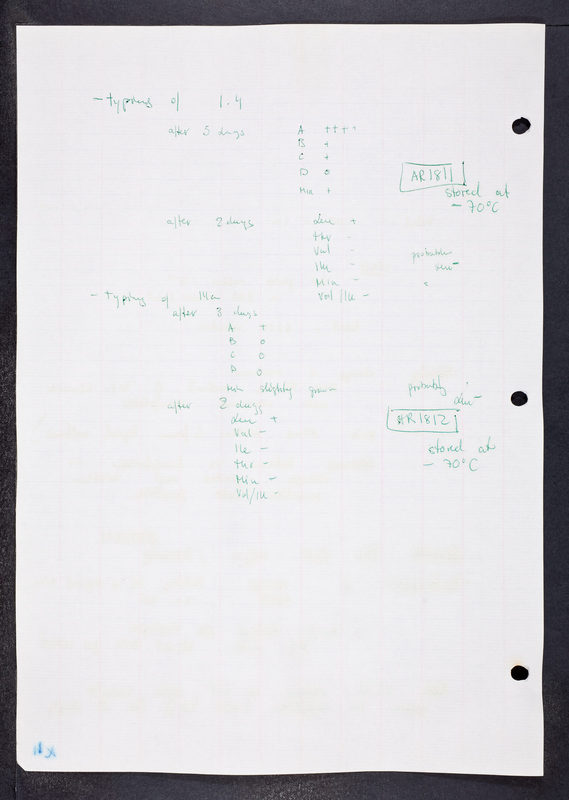 - typing of 1.4
after 5 days A ++++
B +
C +
D 0
Min +
AR1811
stored at
- 70°C
after 2 days Leu +
thr -
Val - probably
Ile - thr-
Min -
Val/Ile -
- Typing of 14a
after 3 days
A +
B 0
C 0
D 0
min slightly grown probably
after 2 days leu-
Leu + AR1812
Val -
Ile - stored at
thr - - 70°C
Min -
Val/Ile -